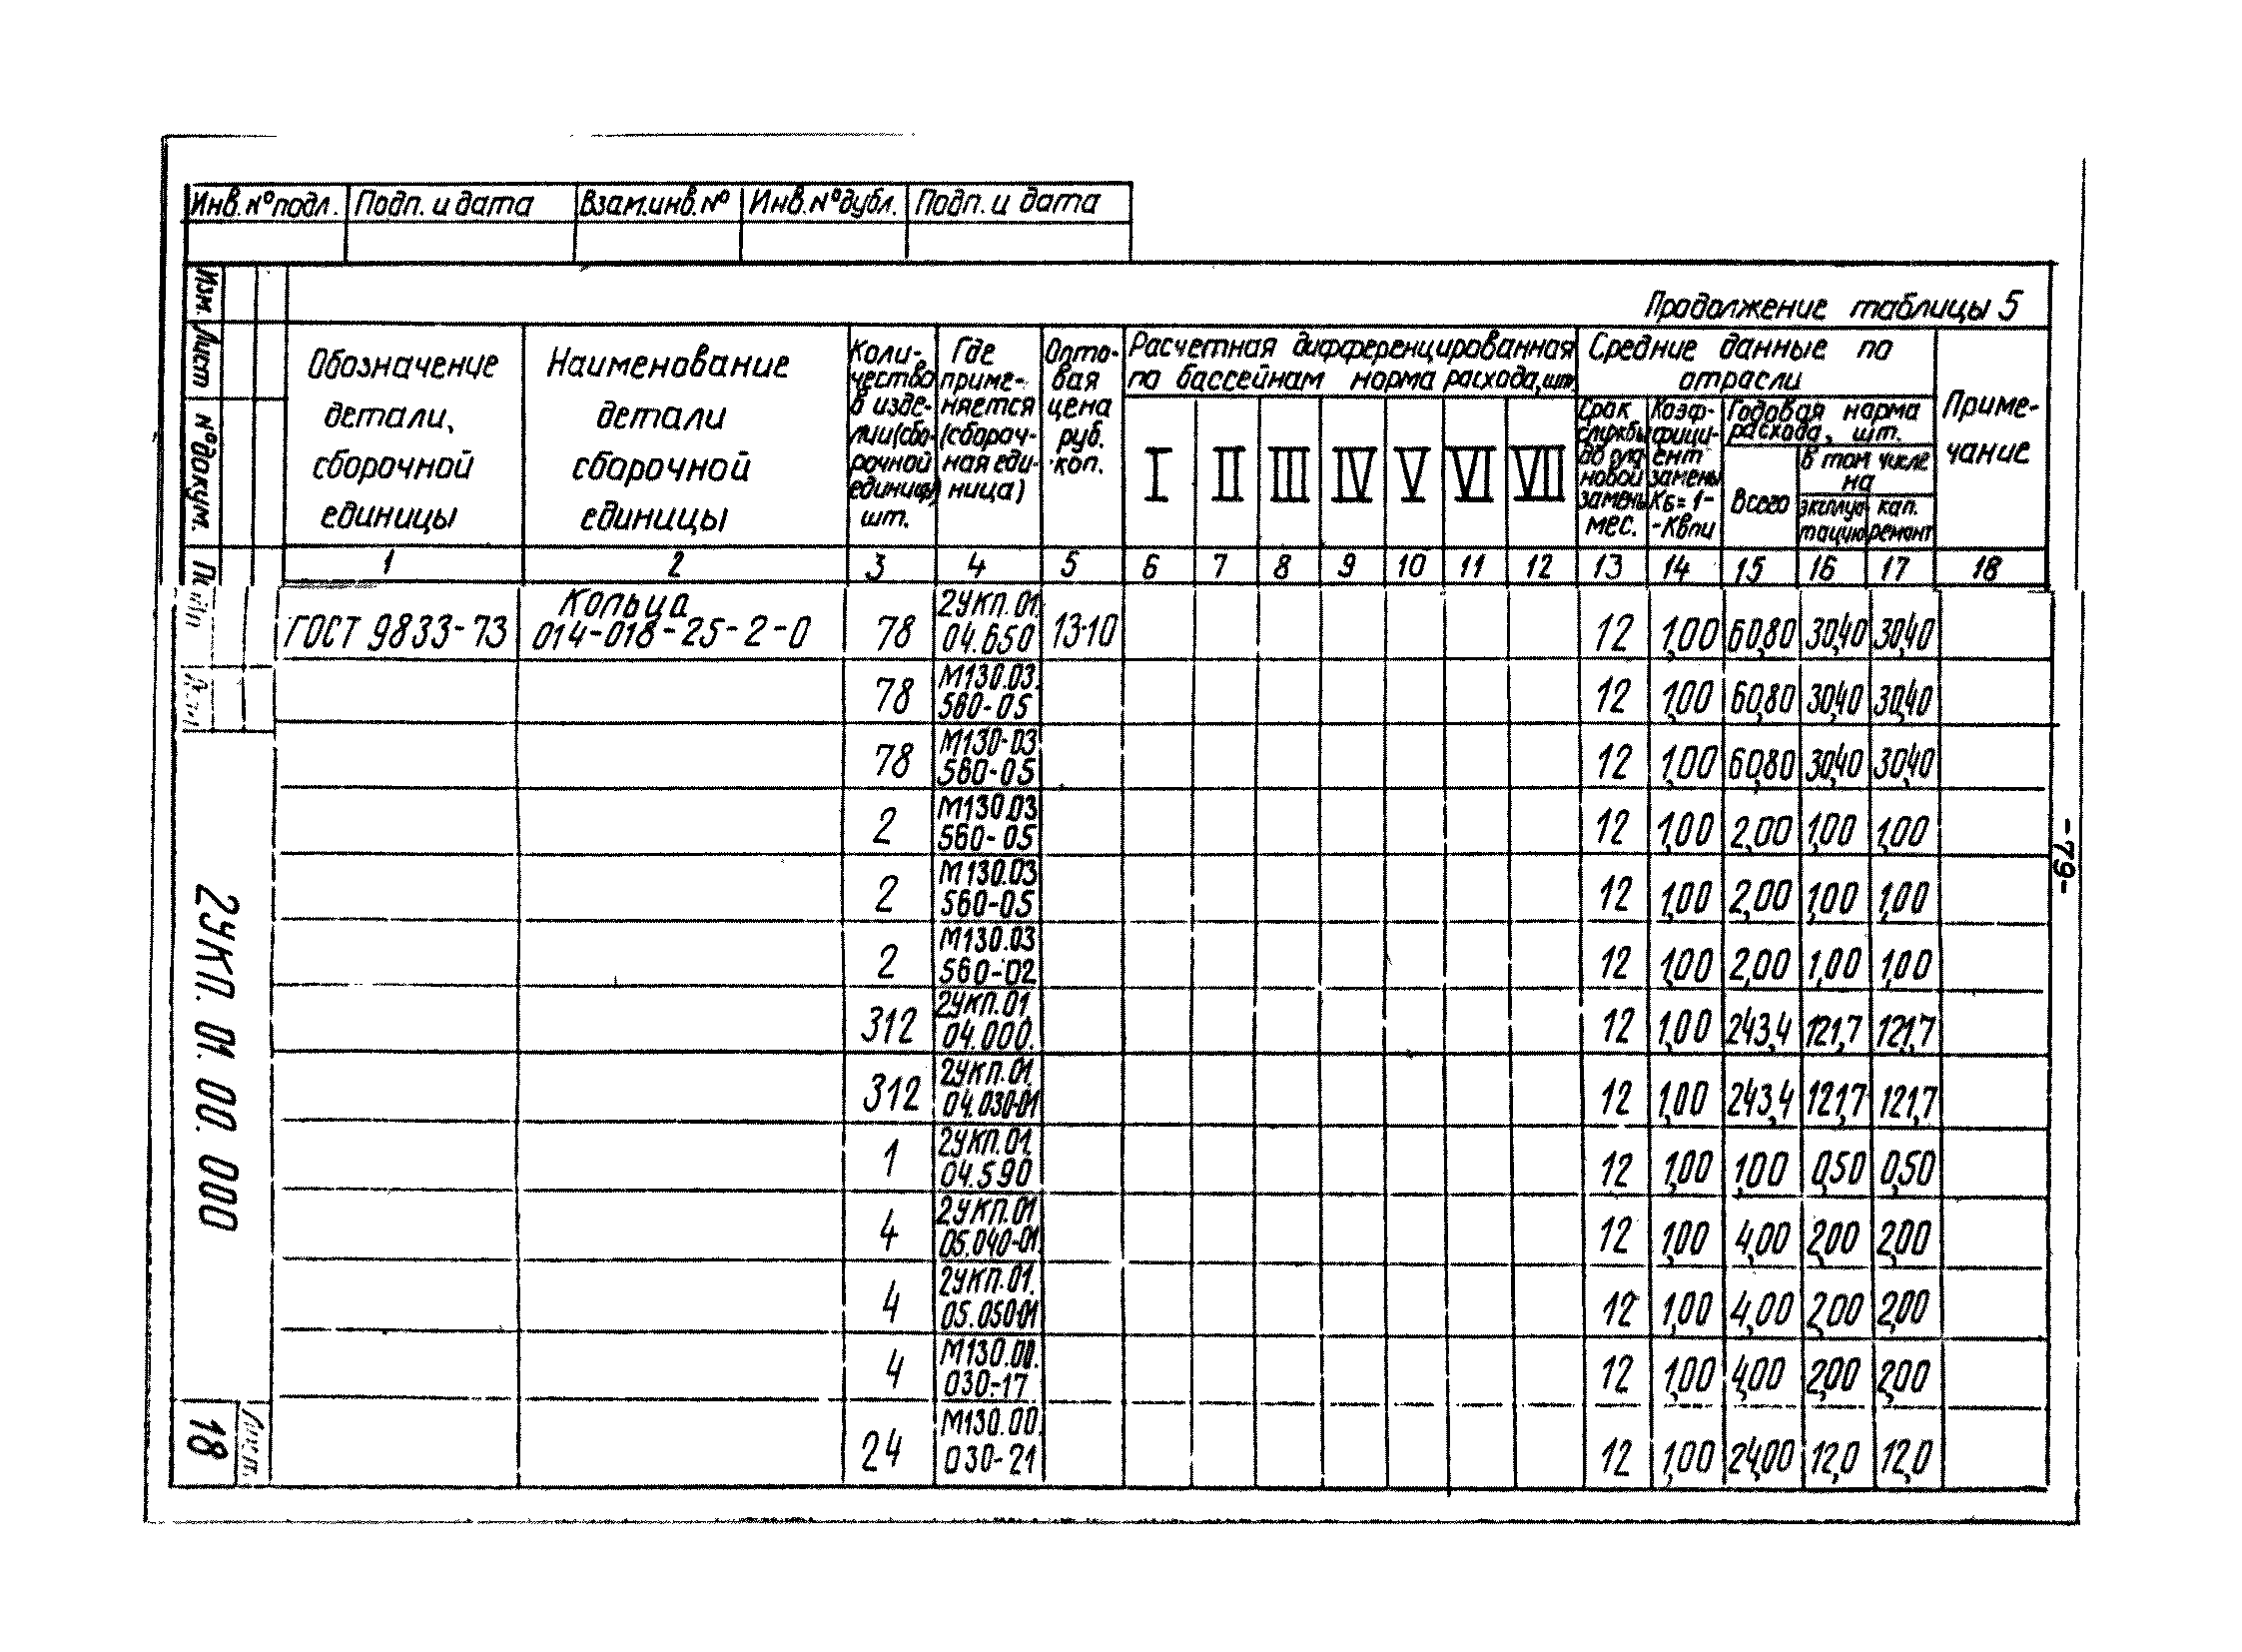 Инв. №подл. Подп. и дата Взам.инв. № Инв. №дубл. Подп. и дата
Изм. Лист №докум.
Продолжение таблицы 5
Обозначение детали, сборочной единицы
Наименование детали сборочной единицы
Количество в изделии (сборочной единицы) шт.
Где применяется (сборочная единица)
Оптовая цена руб. коп.
Расчетная дифференцированная по бассейнам норма расхода, шт.
I II III IV V VI VII
Средние данные по отрасли
Срок службы до плановой замены мес.
Коэффициент замены Кв=1-Квпи
Годовая норма расхода, шт.
Всего
в том числе на
эксплуатацию
кап. ремонт
Примечание
1 2 3 4 5 6 7 8 9 10 11 12 13 14 15 16 17 18
ГОСТ 9833-73 Кольца 014-018-25-2-0 78 2УКП.01.04.650 13-10 12 1,00 60,80 30,40 30,40
78 М130.03.560-05 12 1,00 60,80 30,40 30,40
78 М130-03 560-05 12 1,00 60,80 30,40 30,40
2 М130.03 560-05 12 1,00 2,00 1,00 1,00
2 М130.03 560-05 12 1,00 2,00 1,00 1,00
2 М130.03 560-02 12 1,00 2,00 1,00 1,00
312 2УКП.01.04.000. 12 1,00 243,4 121,7 121,7
312 2УКП.01.04.030-01 12 1,00 243,4 121,7 121,7
1 2УКП.01.04.590 12 1,00 1,00 0,50 0,50
4 2УКП.01 05.040-01. 12 1,00 4,00 2,00 2,00
4 2УКП.01.05.050-01 12 1,00 4,00 2,00 2,00
4 М130.00.030-17 12 1,00 4,00 2,00 2,00
24 М130.00.030-21 12 1,00 24,00 12,0 12,0
2УКП. 01. 00. 000
Лист.
18
-79-